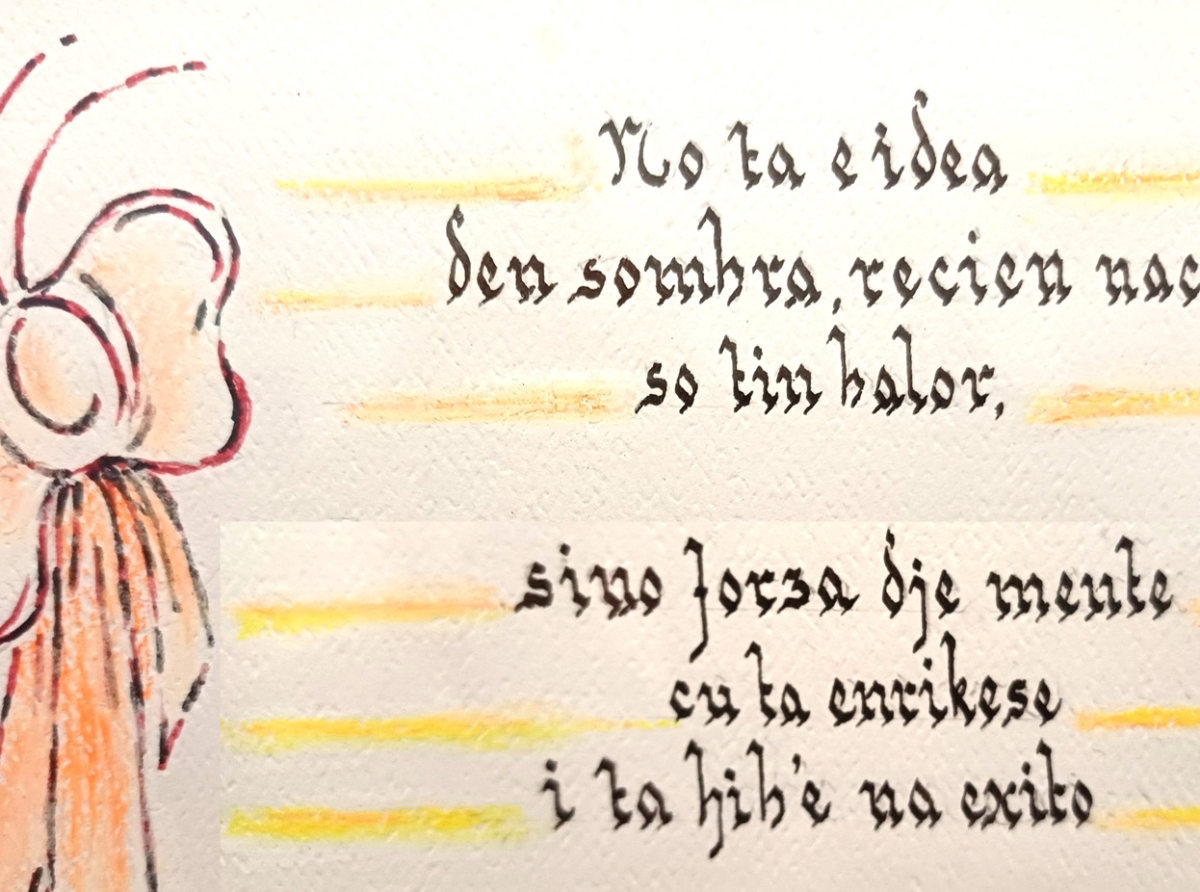 No ta e idea
den sombra, recien nac
so tin balor,
sino forza dje mente
cu ta enrikese
i ta hib'e na exito